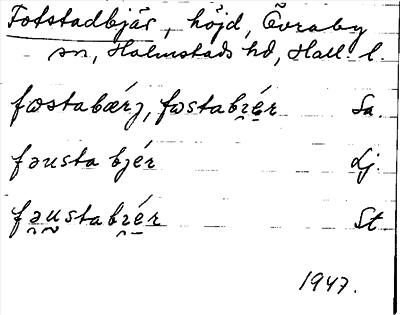 Fotstadbjär, höjd, Övraby
sn, Halmstads hd, Hall. l.
fωstabærj, fωstabɪ̯ér Sa.
fəusta bjér Lj.
fə̯u̯stabɪ̯ér St
1947.